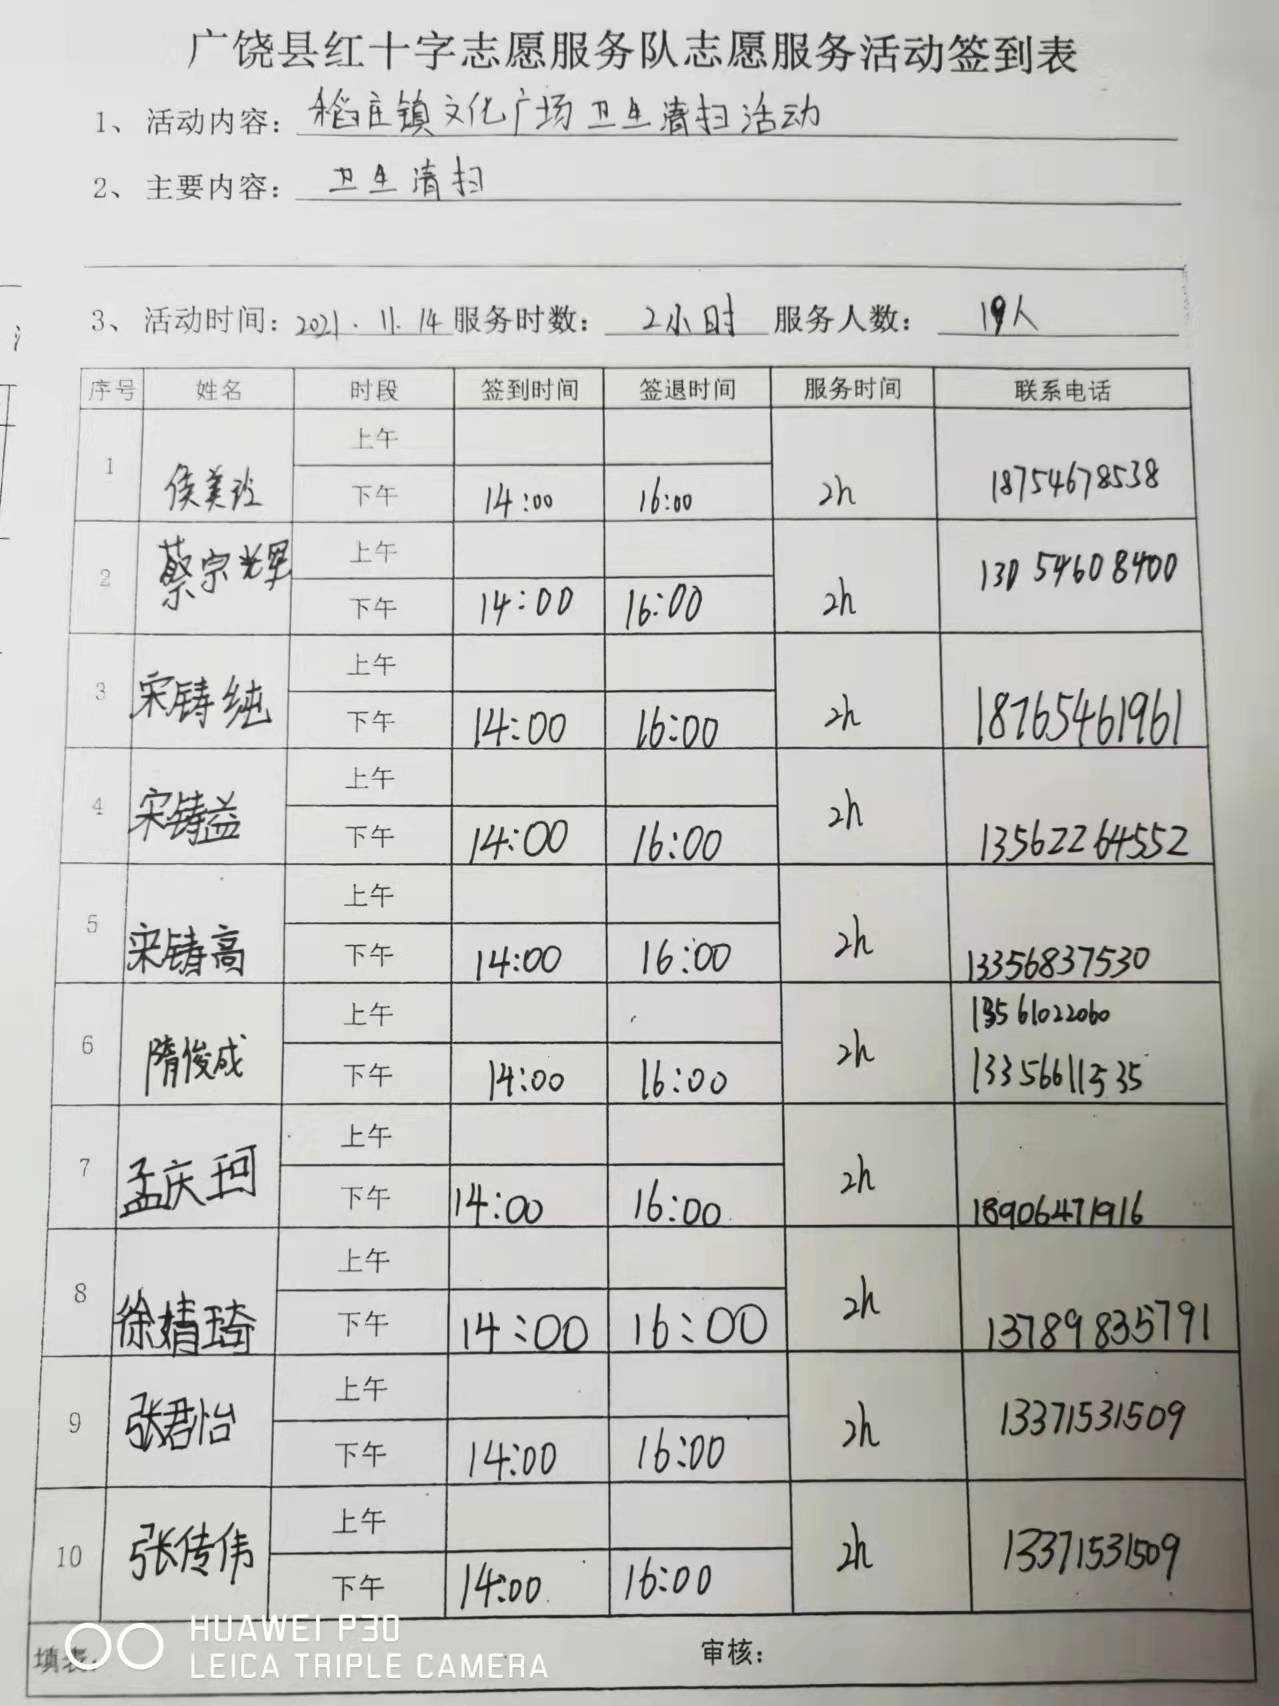 广饶县红十字志愿服务队志愿服务活动签到表
1、活动内容：稻庄镇文化广场卫生清扫活动
2、主要内容：卫生清扫
3、活动时间：2021.11.14 服务时数：2小时 服务人数：19人
序号 姓名 时段 签到时间 签退时间 服务时间 联系电话
上午
1 侯美玲 下午 14:00 16:00 2h 18754678538
上午
2 蔡宗辉 下午 14:00 16:00 2h 13054608400
上午
3 宋铸纯 下午 14:00 16:00 2h 18765461961
上午
4 宋铸益 下午 14:00 16:00 2h 13562264552
上午
5 宋铸高 下午 14:00 16:00 2h 13356837530
上午 13561022060
6 隋俊成 下午 14:00 16:00 2h 13356611535
上午
7 孟庆珂 下午 14:00 16:00 2h 18906471916
上午
8 徐婧琦 下午 14:00 16:00 2h 13789835791
上午
9 张君怡 下午 14:00 16:00 2h 13371531509
上午
10 张传伟 下午 14:00 16:00 2h 13371531509
填表： 审核：
HUAWEI P30
LEICA TRIPLE CAMERA